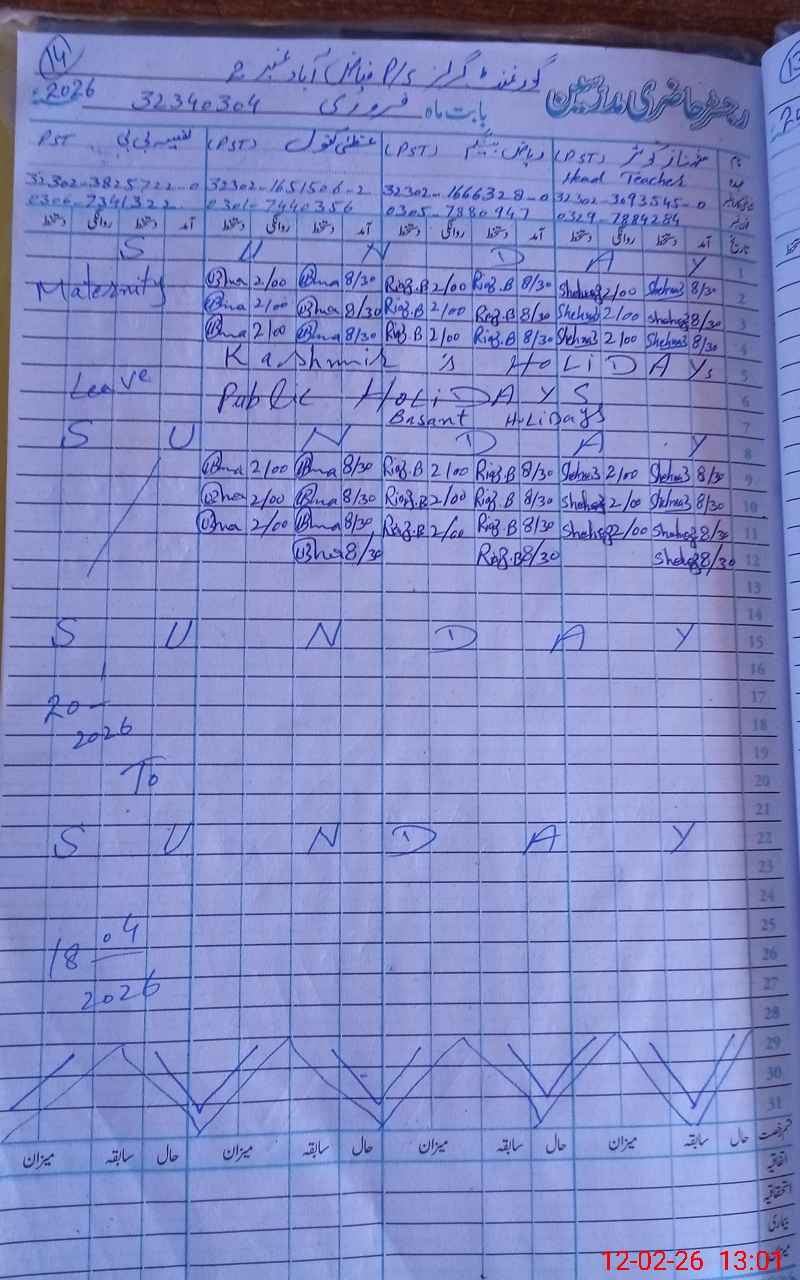 14
گورنمنٹ گرلز P/S فیاض آباد نمبر 2
رجسٹر حاضری مدرسین
بابت ماہ فروری 32340304 2026
نام شہناز کوثر (PST) ریاض بیگم (PST) عظمیٰ کنول (PST) نفیسہ بی بی PST
عہدہ Head Teacher
32302-3093545-0 32302-1666328-0 32302-1651506-2 32302-3825722-0
0329-7884284 0305-7880947 0301-7440356 0306-7341322
تاریخ آمد دستخط روانگی دستخط آمد دستخط روانگی دستخط آمد دستخط روانگی دستخط آمد دستخط روانگی دستخط
S U N D A Y 1
Maternity 2/00 8/30 Riaz.B 2/00 Riaz.B 8/30 Shehnaz 2/00 Shehnaz 8/30 2
2/00 8/30 Riaz.B 2/00 Riaz.B 8/30 Shehnaz 2/00 Shehnaz 8/30 3
2/00 8/30 Riaz.B 2/00 Riaz.B 8/30 Shehnaz 2/00 Shehnaz 8/30 4
Kashmir's HoLiDAYs 5
Leave Public HoLiDAYS 6
Basant HoLiDays 7
S U N D A Y 8
2/00 8/30 Riaz.B 2/00 Riaz.B 8/30 Shehnaz 2/00 Shehnaz 8/30 9
2/00 8/30 Riaz.B 2/00 Riaz.B 8/30 Shehnaz 2/00 Shehnaz 8/30 10
2/00 8/30 Riaz.B 2/00 Riaz.B 8/30 Shehnaz 2/00 Shehnaz 8/30 11
8/30 Riaz.B 8/30 Shehnaz 8/30 12
13
14
S U N D A Y 15
16
20- 17
2026 18
19
To 20
21
S U N D A Y 22
23
24
25
18 04 26
2026 27
28
29
30
31
قسم رخصت حال سابقہ میزان حال سابقہ میزان حال سابقہ میزان حال سابقہ میزان
اتفاقیہ
استحقاقیہ
بیماری
12-02-26 13:01